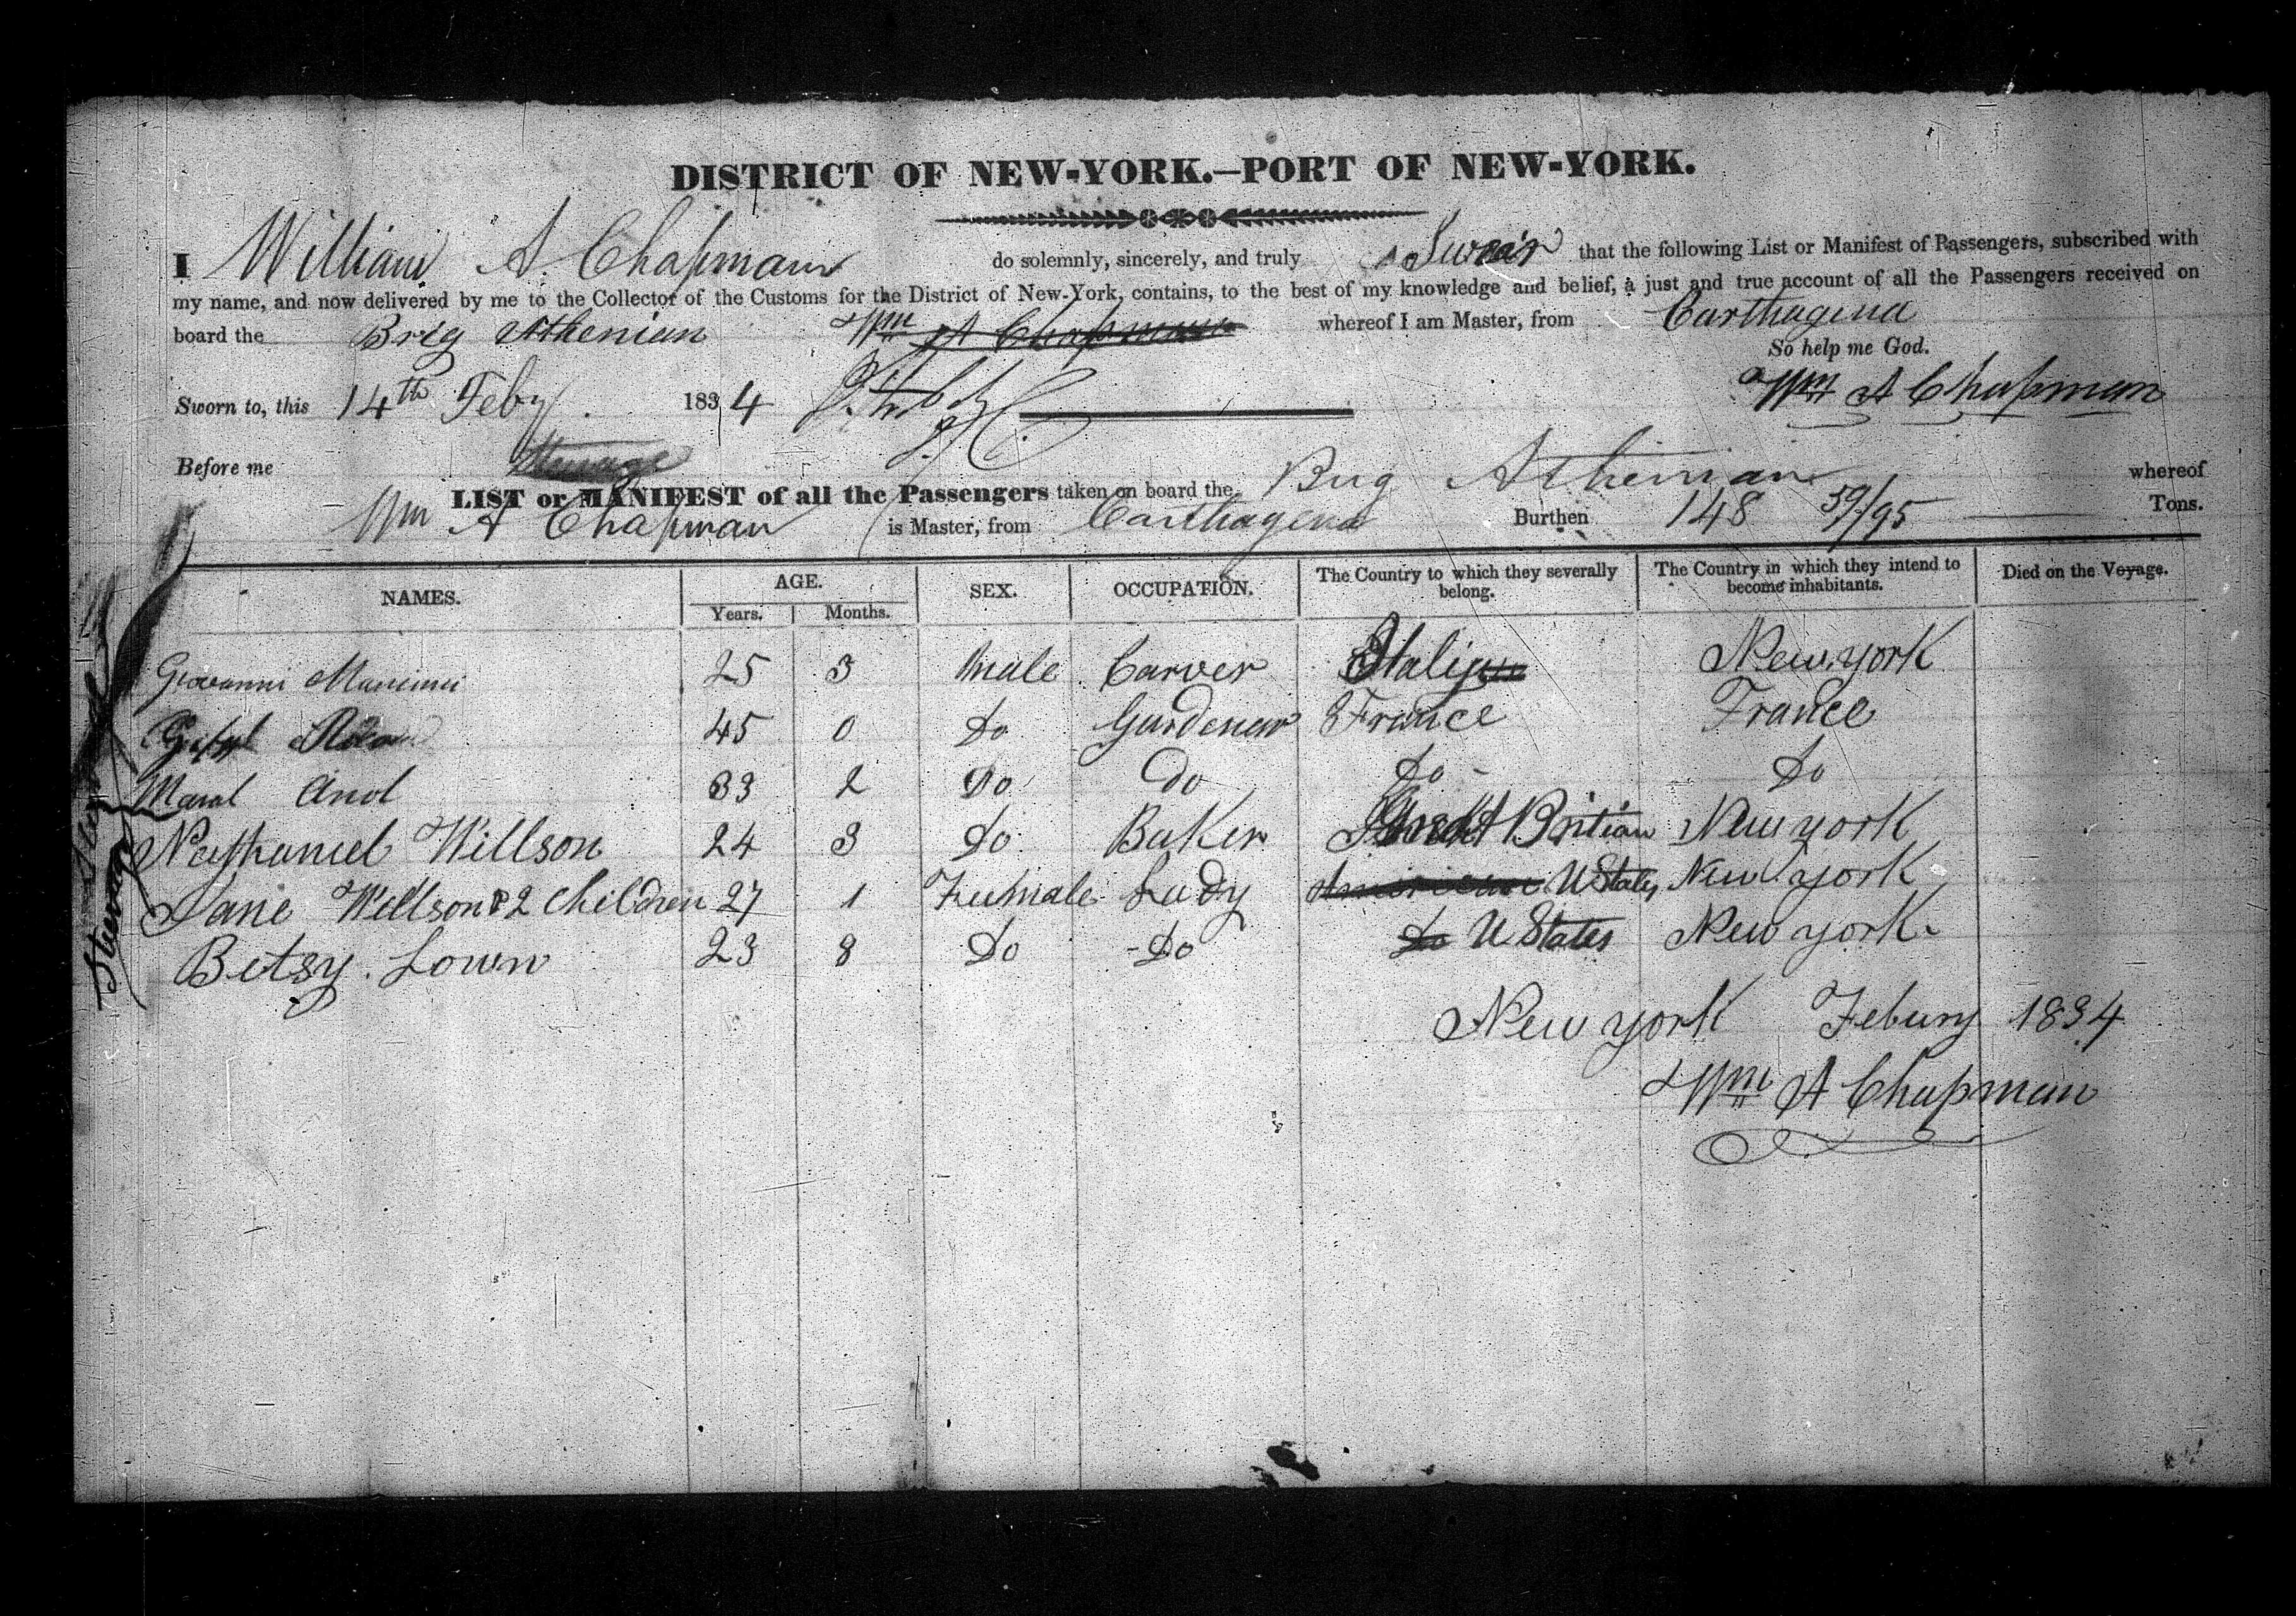 DISTRICT OF NEW-YORK.—PORT OF NEW-YORK.
I William A. Chapman do solemnly, sincerely, and truly Swear that the following List or Manifest of Passengers, subscribed with
my name, and now delivered by me to the Collector of the Customs for the District of New-York, contains, to the best of my knowledge and belief, a just and true account of all the Passengers received on
board the Brig Athenian Wm A Chapman whereof I am Master, from Carthagena
So help me God.
Sworn to, this 14th Feby. 1834 Wm A Chapman
Before me Steerage
LIST or MANIFEST of all the Passengers taken on board the Brig Athenian whereof
Wm A Chapman is Master, from Carthagena Burthen 148 59/95 Tons.
NAMES. AGE. SEX. OCCUPATION. The Country to which they severally belong. The Country in which they intend to become inhabitants. Died on the Voyage.
Years. Months.
Giovanni Mancinni 25 3 Male Carver Italy New york
45 0 Do Gardener France France
Maral And 33 2 Do Do Do Do
Nathaniel Willson 24 3 Do Baker Great Britian New york
Jane Willson & 2 Children 27 1 Female Lady American U States New york
Betsy. Lown 23 8 Do Do Do U States New york
Steerage
New york Febury 1834
Wm A Chapman